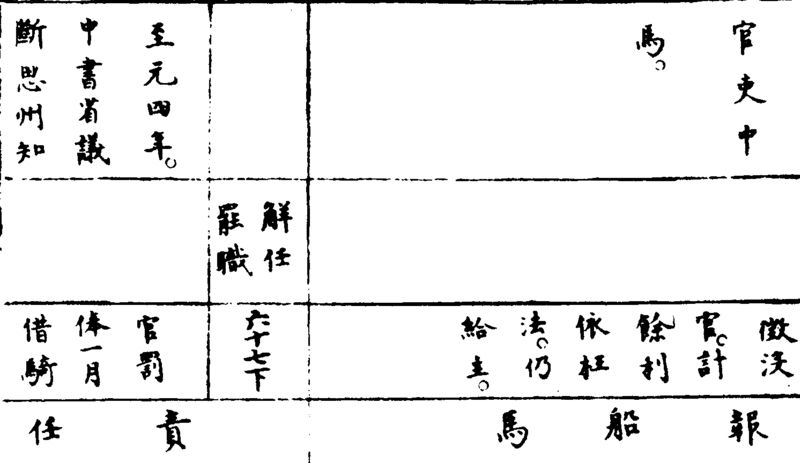 官吏中
馬。
至元四年。
中書省議
斷思州知
解任
罷職
徵沒
官。計
餘利
依枉
法。仍
給主。
六十七下
官罰
俸一月
借騎
報船馬
責任